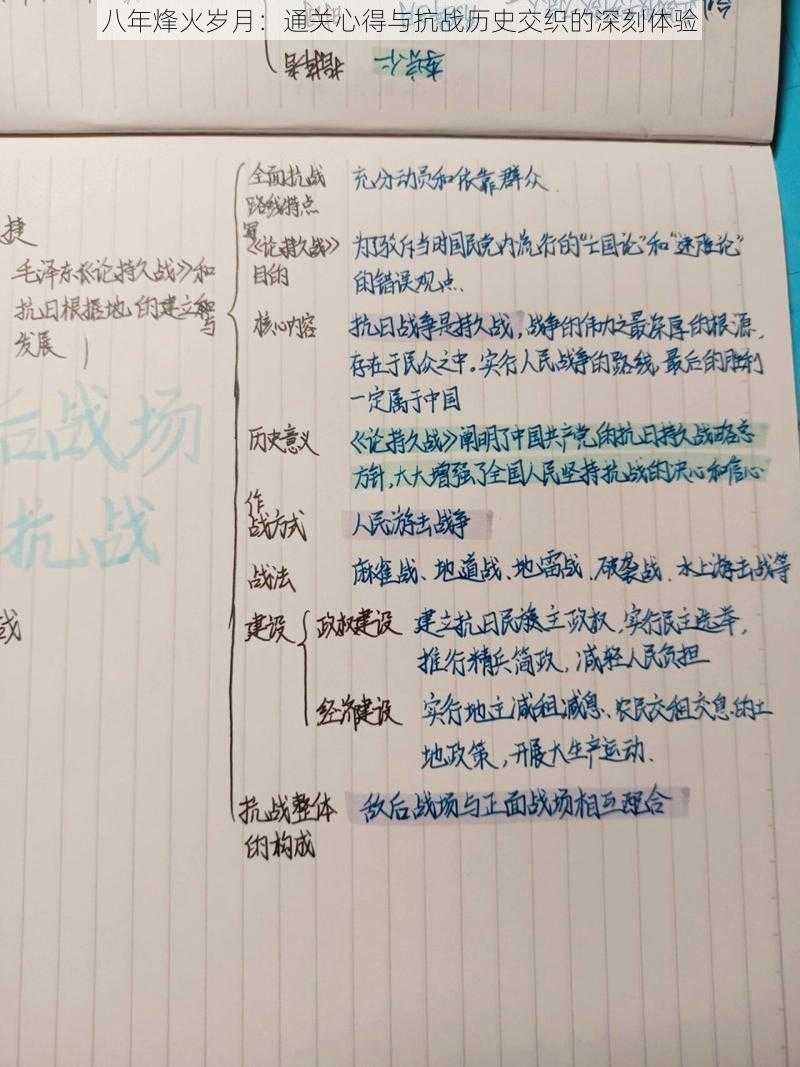 八年烽火岁月：通关心得与抗战历史交织的深刻体验
李宗仁
捷
毛泽东《论持久战》和
抗日根据地的建立与
发展
后战场
抗战
战
全面抗战
路线特点
充分动员和依靠群众
写
《论持久战》
目的
为了驳斥当时国民党内流行的“亡国论”和“速胜论”
的错误观点.
核心内容
抗日战争是持久战，战争的伟力之最深厚的根源，
存在于民众之中。实行人民战争的路线，最后的胜利
一定属于中国
历史意义
《论持久战》阐明了中国共产党的抗日持久战略总
方针，大大增强了全国人民坚持抗战的决心和信心
作
战方式
人民游击战争
战法
麻雀战、地道战、地雷战、破袭战、水上游击战等
建设
政权建设
建立抗日民族主政权，实行民主选举，
推行精兵简政，减轻人民负担
经济建设
实行地主减租减息、农民交租交息的土
地政策，开展大生产运动.
抗战整体
的构成
敌后战场与正面战场相互配合